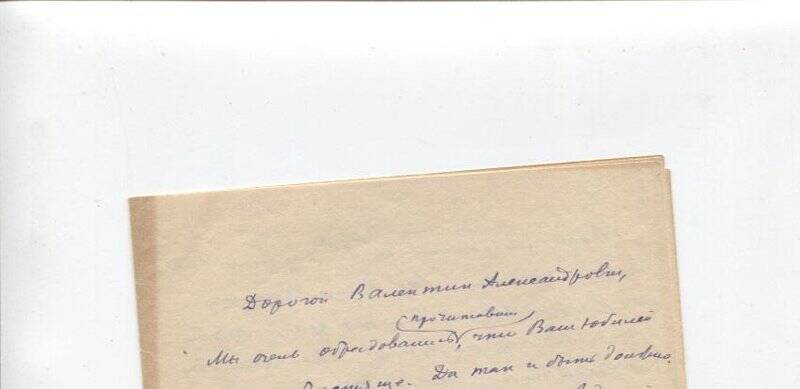 Дорогой Валентин Александрович,
прочитавши
Мы очень обрадовались, что Ваш юбилей
Да так и быть должно.